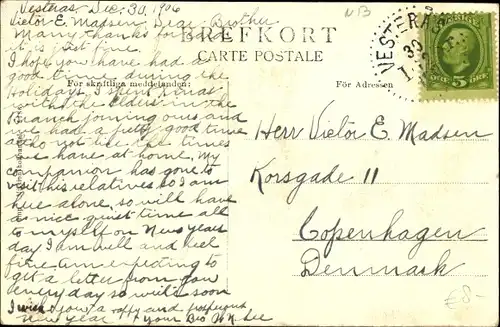 Vesteras, Dec. 30, 1906
Victor E. Madsen, Dear Brother
Many thanks for
it is just fine.
I hope you have had a
good time during the
Holidays. I spent
with the Elders in the
Branch joining ous and
we had a good time
not like the times
we have at home. My
companion has gone to
visit his relatives so I am
here alone, so will have
a nice quiet time all
to myself on New Years
day I am well and feel
fine am expecting to
get a letter from you
every day so write soon
I wish you a happy and prosperous
New Year. your Bro
BREFKORT
CARTE POSTALE
För skriftliga meddelanden:
För Adressen
NB
VESTERÅS
30
SVERIGE
ÖRE 5 ÖRE
Herr Victor E. Madsen
Korsgade 11
Copenhagen
Denmark
€8-